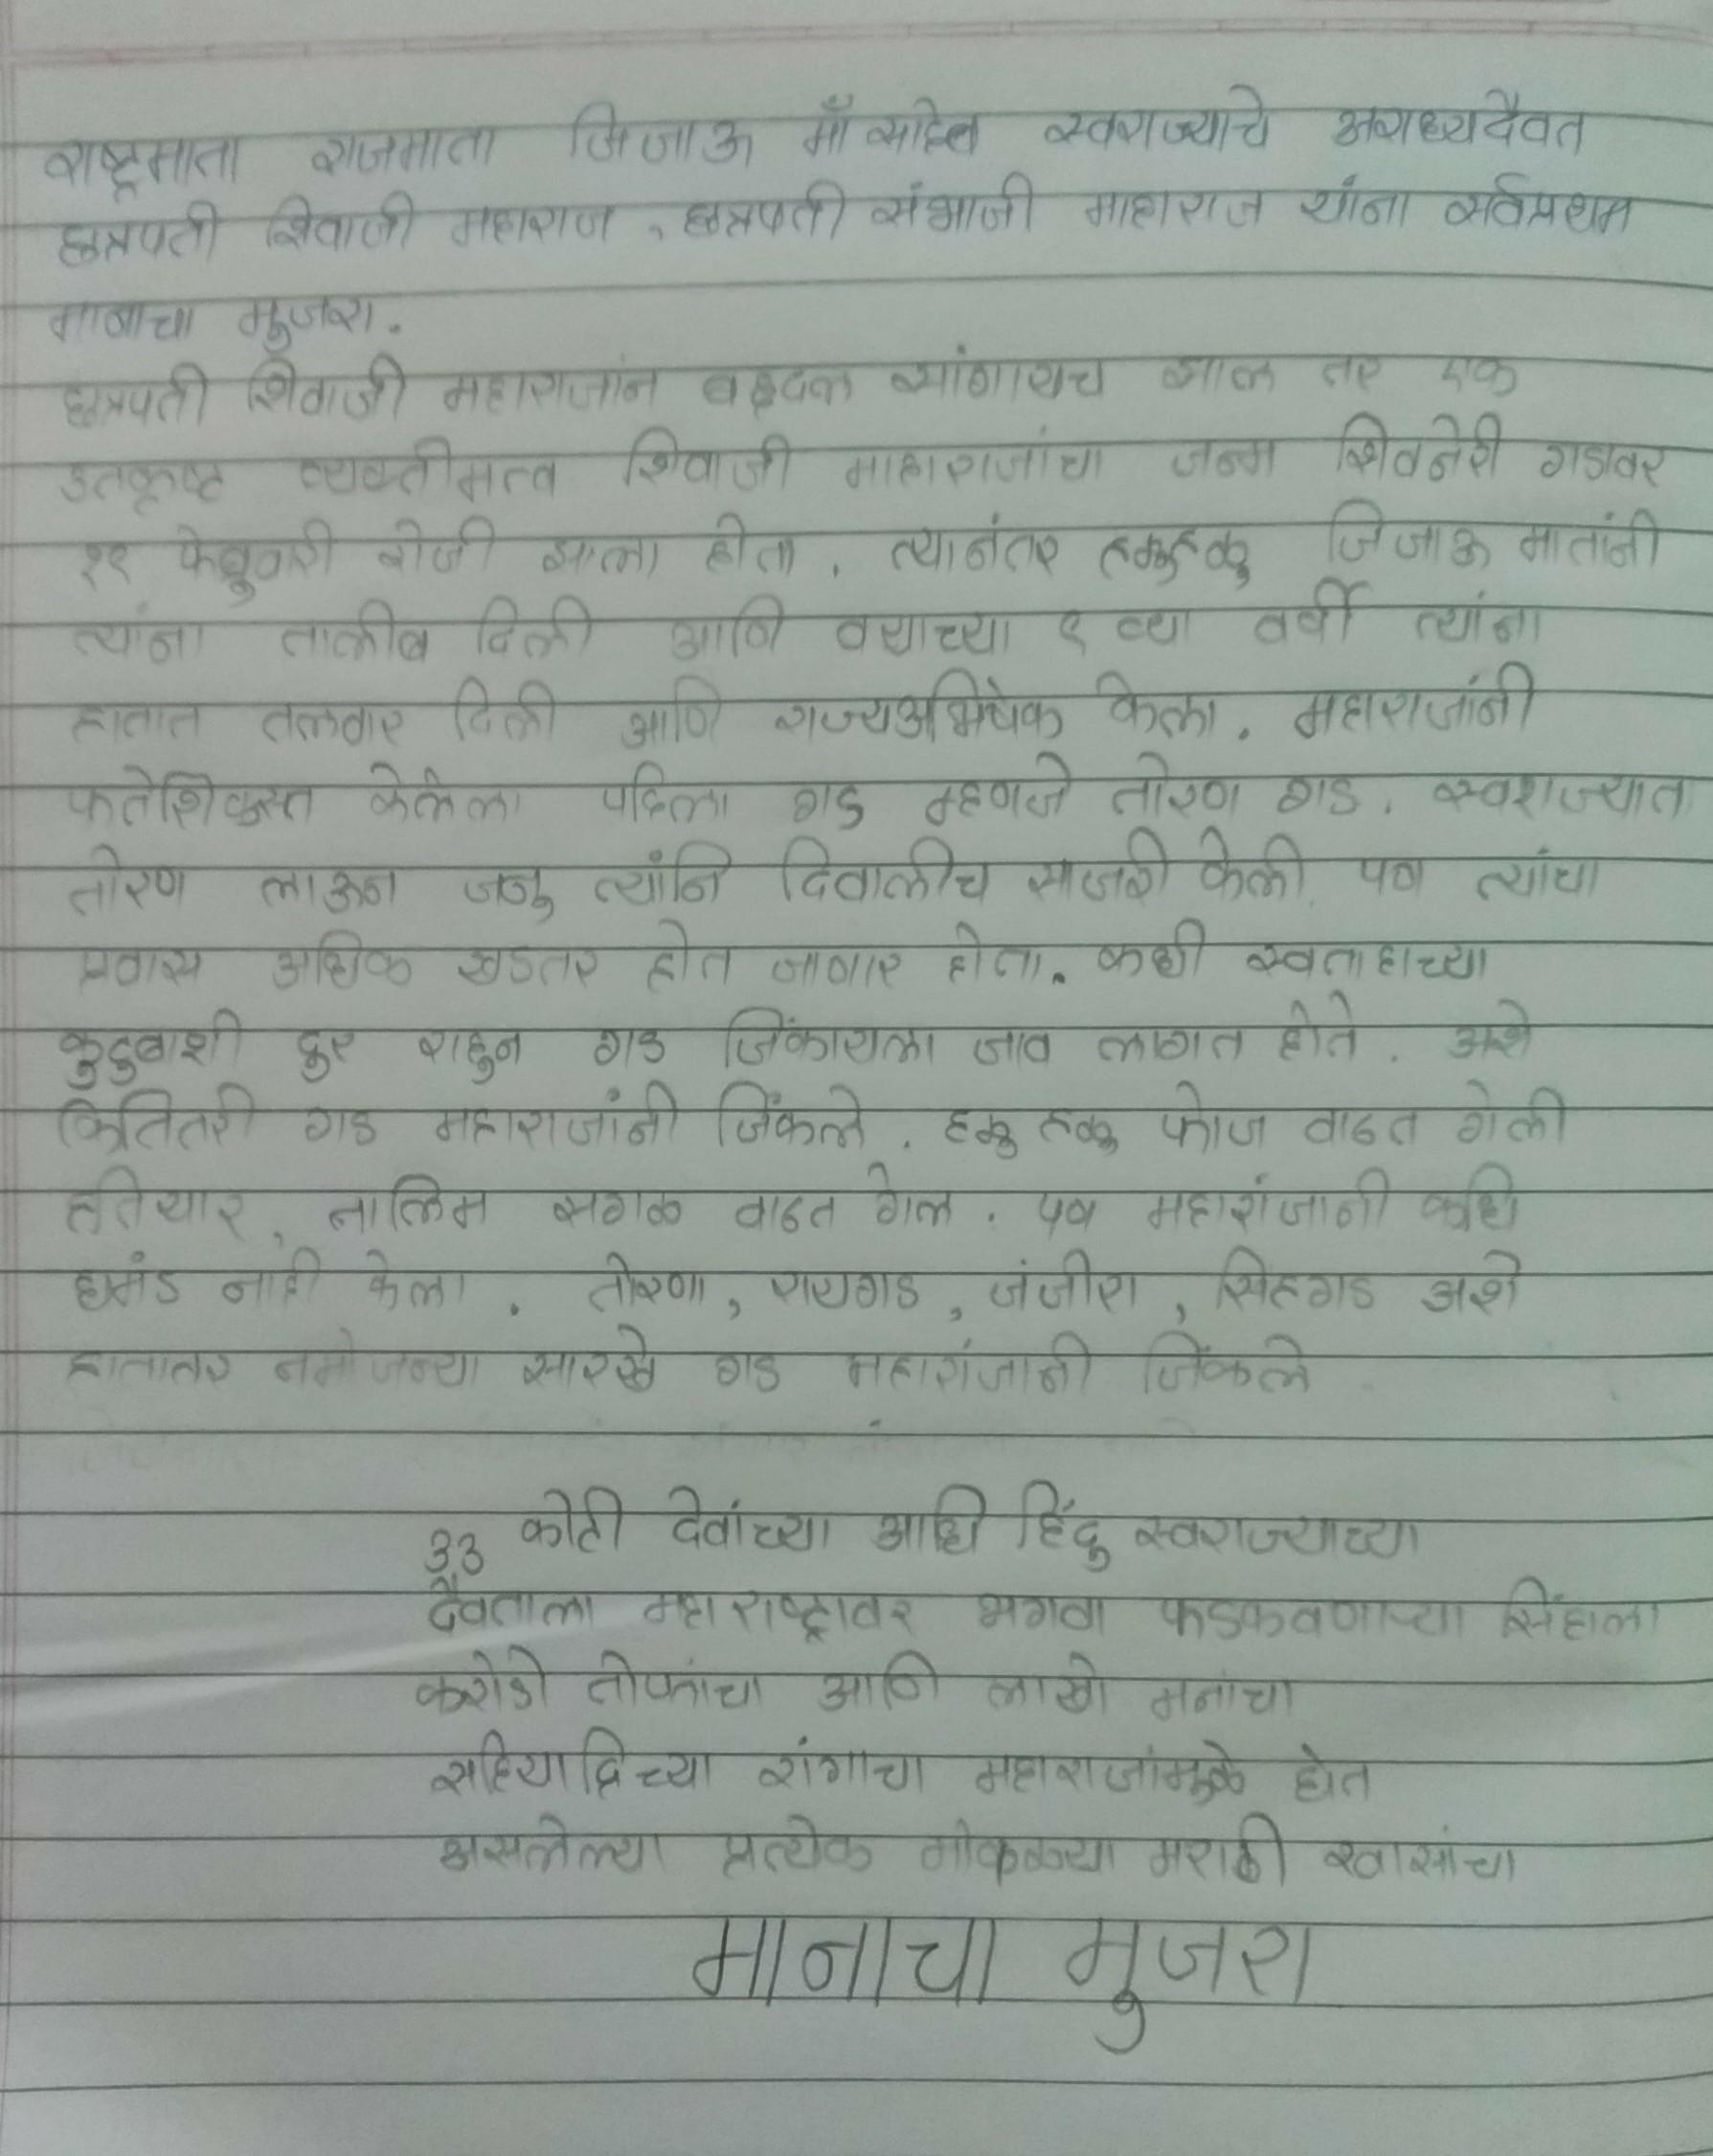 राष्ट्रमाता राजमाता जिजाऊ माँ साहेब स्वराज्याचे अराध्यदैवत
छत्रपती शिवाजी महाराज, छत्रपती संभाजी माहाराज यांना सर्वप्रथम
मानाचा मुजरा.
छत्रपती शिवाजी महाराजांन बद्दल सांगायच झाल तर एक
उतकृष्ट व्यक्तीमत्व शिवाजी माहाराजांचा जन्म शिवनेरी गडावर
१९ फेब्रुवारी रोजी झाला होता. त्यानंतर हळुहळु जिजाऊ मातांनी
त्यांना तालीम दिली आणि वयाच्या ९ व्या वर्षी त्यांना
हातात तलवार दिली आणि राज्यअभिषेक केला. महाराजांनी
फतेशिकस्त केलेला पहिला गड म्हणजे तोरण गड. स्वराज्यात
तोरण लाऊन जनु त्यांनि दिवाळीच साजरी केली. पण त्यांचा
प्रवास अधिक खडतर होत जाणार होता. कधी स्वताहाच्या
कुटुबाशी दुर राहुन गड जिंकायला जाव लागत होते. अशे
कितितरी गड महाराजांनी जिंकले. हळु हळु फोज वाढत गेली
हतियार, तालिम सगळ वाढत गेल. पण महारांजानी कधि
घमंड नाही केला. तोरणा, रायगड, जंजीरा, सिंहगड अशे
हातातर नमोजन्या सारखे गड महारांजानी जिंकले
३३ कोटी देवांच्या आधि हिंदु स्वराज्याच्या
दैवताला महाराष्ट्रावर भगवा फडकवणाऱ्या सिंहाला
करोडो तोफांचा आणि लाखो मनांचा
सहियाद्रिच्या रांगाचा महाराजांमुळे होत
असलेल्या प्रत्येक मोकळ्या मराठी श्वासांचा
मानाचा मुजरा